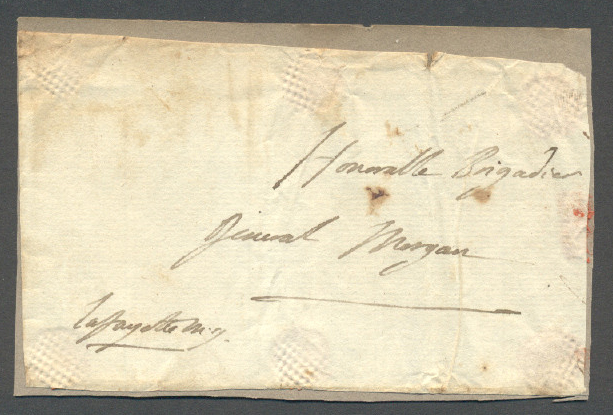 Honorable Brigadier
General Morgan
Lafayette M. G.